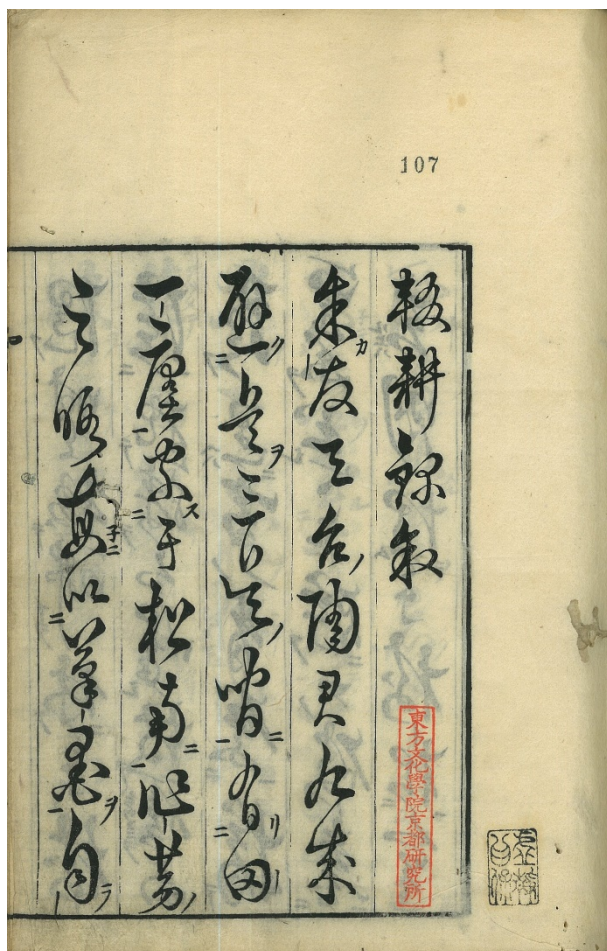 107
輟耕録叙
余友天台陶君九成
避兵三吳間有田
一廛家于松南作勞
之暇每以筆墨自
東方文化學院京都研究所